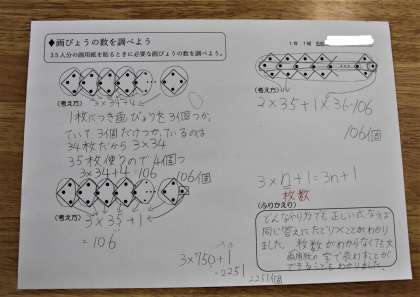 ◆画びょうの数を調べよう
35人分の画用紙を貼るときに必要な画びょうの数を調べよう。
(考え方) 3×34+4
1枚につき画びょうを3個つか
っていて3個だけつかっているのは
34枚だから3×34
35枚使うので4個つ
3×34+4=106
106個
(考え方) 3×35+1
=106
3×750+1
=2251
2251個
1年 1組 名前
(考え方)
2×35+1×36=106
106個
3×n+1=3n+1
枚数
(ふりかえり)
どんなやり方でも正しい式ならば
同じ答えにたどりつくことがわかり
ました。枚数がわからなくても文
字で表わすことが
できることもわかりました。